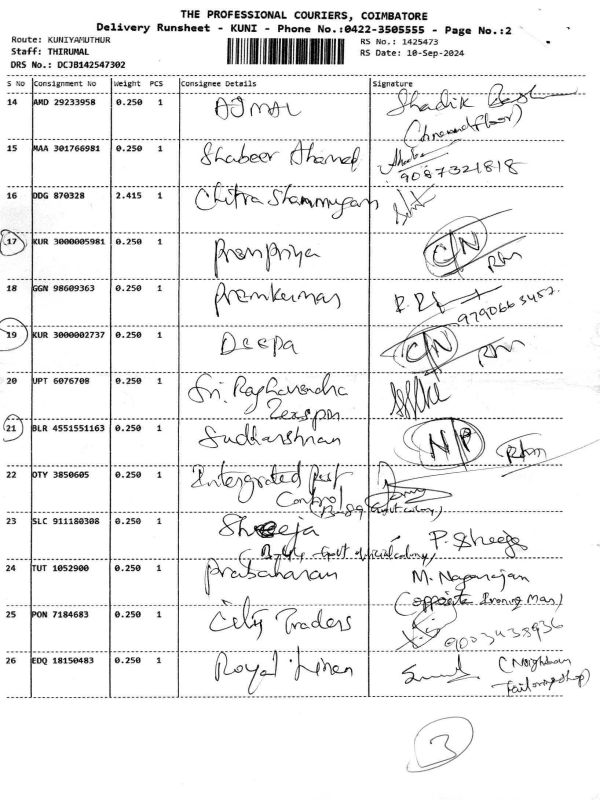 THE PROFESSIONAL COURIERS, COIMBATORE
Delivery Runsheet - KUNI - Phone No.:0422-3505555 - Page No.:2
Route: KUNIYAMUTHUR
RS No.: 1425473
Staff: THIRUMAL
RS Date: 10-Sep-2024
DRS No.: DCJB142547302
S No Consignment No Weight PCS Consignee Details Signature
14 AMD 29233958 0.250 1 AJMAL Shadik
15 MAA 301766981 0.250 1 Shabeer Ahamed
9087321818
16 DDG 870328 2.415 1 Chitra Shanmugam
17 KUR 3000005981 0.250 1 Prempriya C/N
18 GGN 98609363 0.250 1 Premkumar
9790663452
19 KUR 3000002737 0.250 1 Deepa C/N
20 UPT 6076708 0.250 1 Sri. Raghavendra
21 BLR 4551551163 0.250 1 Sudharshnan N/P
22 OTY 3850605 0.250 1 Intergrated Pest
Control B-89 Govt colony)
23 SLC 911180308 0.250 1 Sheeja P. Sheeja
24 TUT 1052900 0.250 1 Prabaharan M. Nagarajan
(opposite Ironing Man)
25 PON 7184683 0.250 1 City Traders
9003438936
26 EDQ 18150483 0.250 1 Royal Linen (Neighbour
Tailoring shop)
3